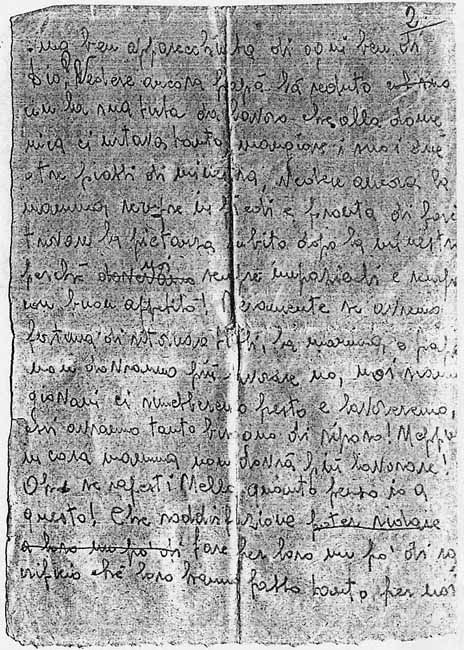 2.
una ben apparecchiata di ogni ben di
Dio! Vedere ancora papà là seduto
con la sua tuta da lavoro che alla dome
nica ci metava tanto mangiare i suoi due
o tre piatti di minestra, Vedere ancora la
mamma, sempre in piedi e pronta di farci
trovare la pietanza subito dopo la minestra
perché noi sempre impazienti e sempre
con buon appetito! Veramente se avremo
fortuna di ritornare Titti, la mamma, e papà
non dovranno più lavorare no, noi siamo
giovani ci rimetteremo presto e lavoreremo,
essi avranno tanto bisogno di riposo! Neppure
in casa mamma non dovrà più lavorare!
Oh se sapesti Mella, quanto penso io a
questo! Che soddisfazione poter ridare
a loro un po' di fare per loro un po' di sa
crificio che loro hanno fatto tanto per noi